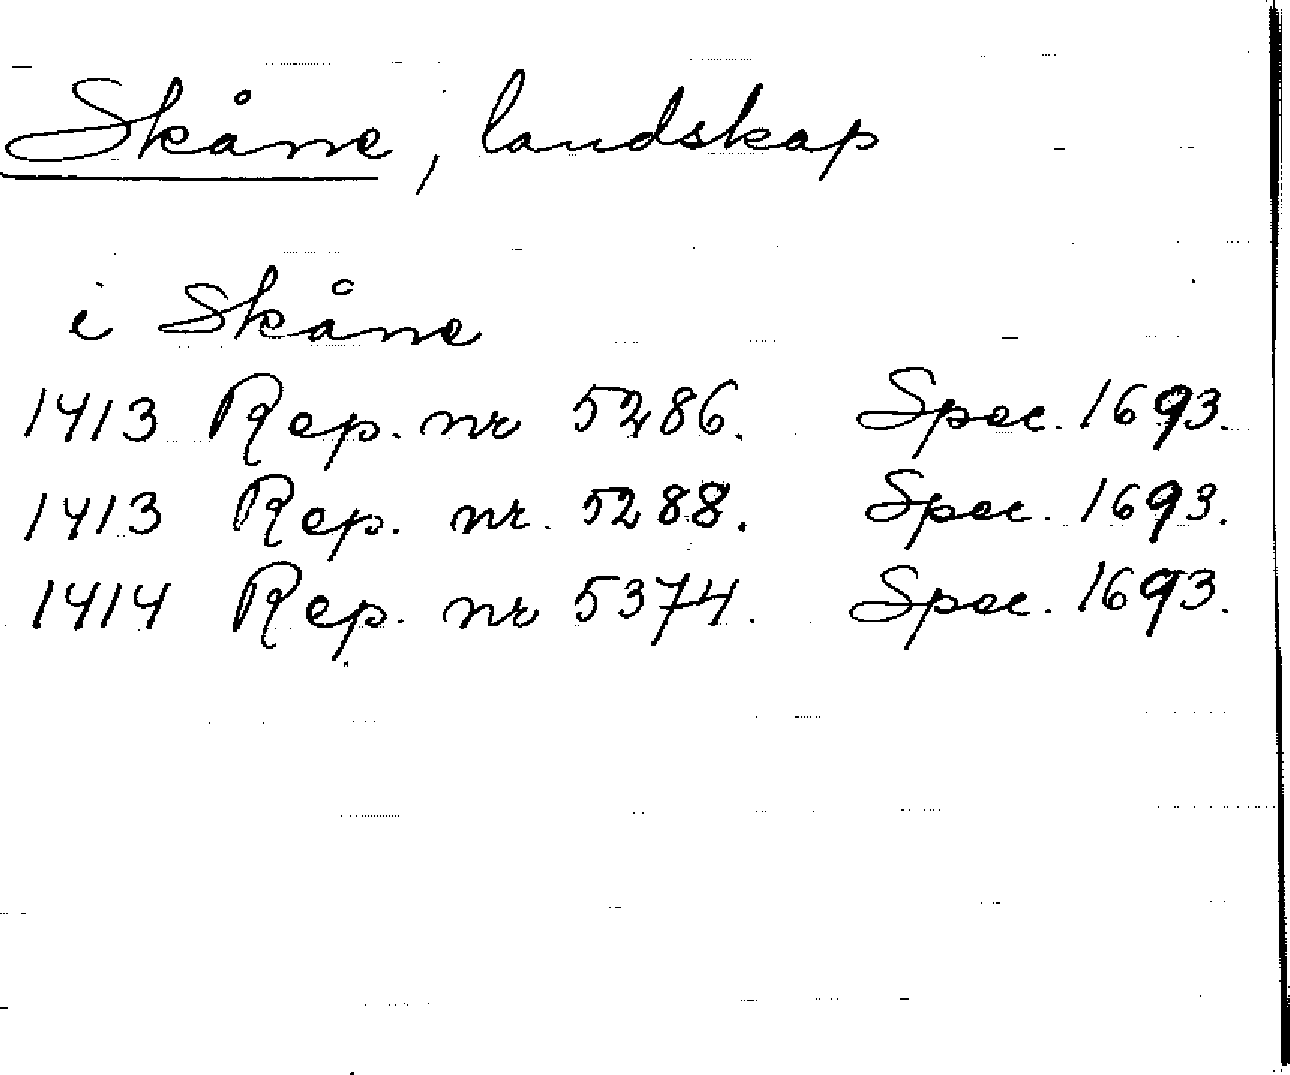 Skåne, landskap
i Skåne
1413 Rep. nr 5286. Spec. 1693.
1413 Rep. nr. 5288. Spec. 1693.
1414 Rep. nr 5374. Spec. 1693.